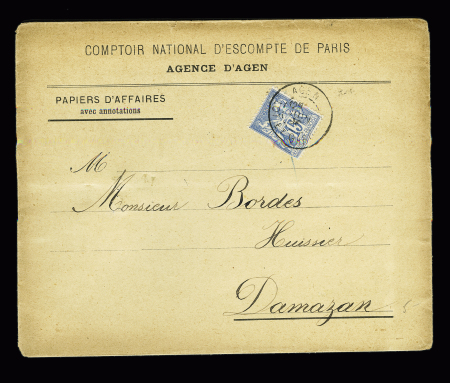 COMPTOIR NATIONAL D'ESCOMPTE DE PARIS
AGENCE D'AGEN
PAPIERS D'AFFAIRES
avec annotations
AGEN
15
M
Monsieur Bordes
Huissier
Damazan